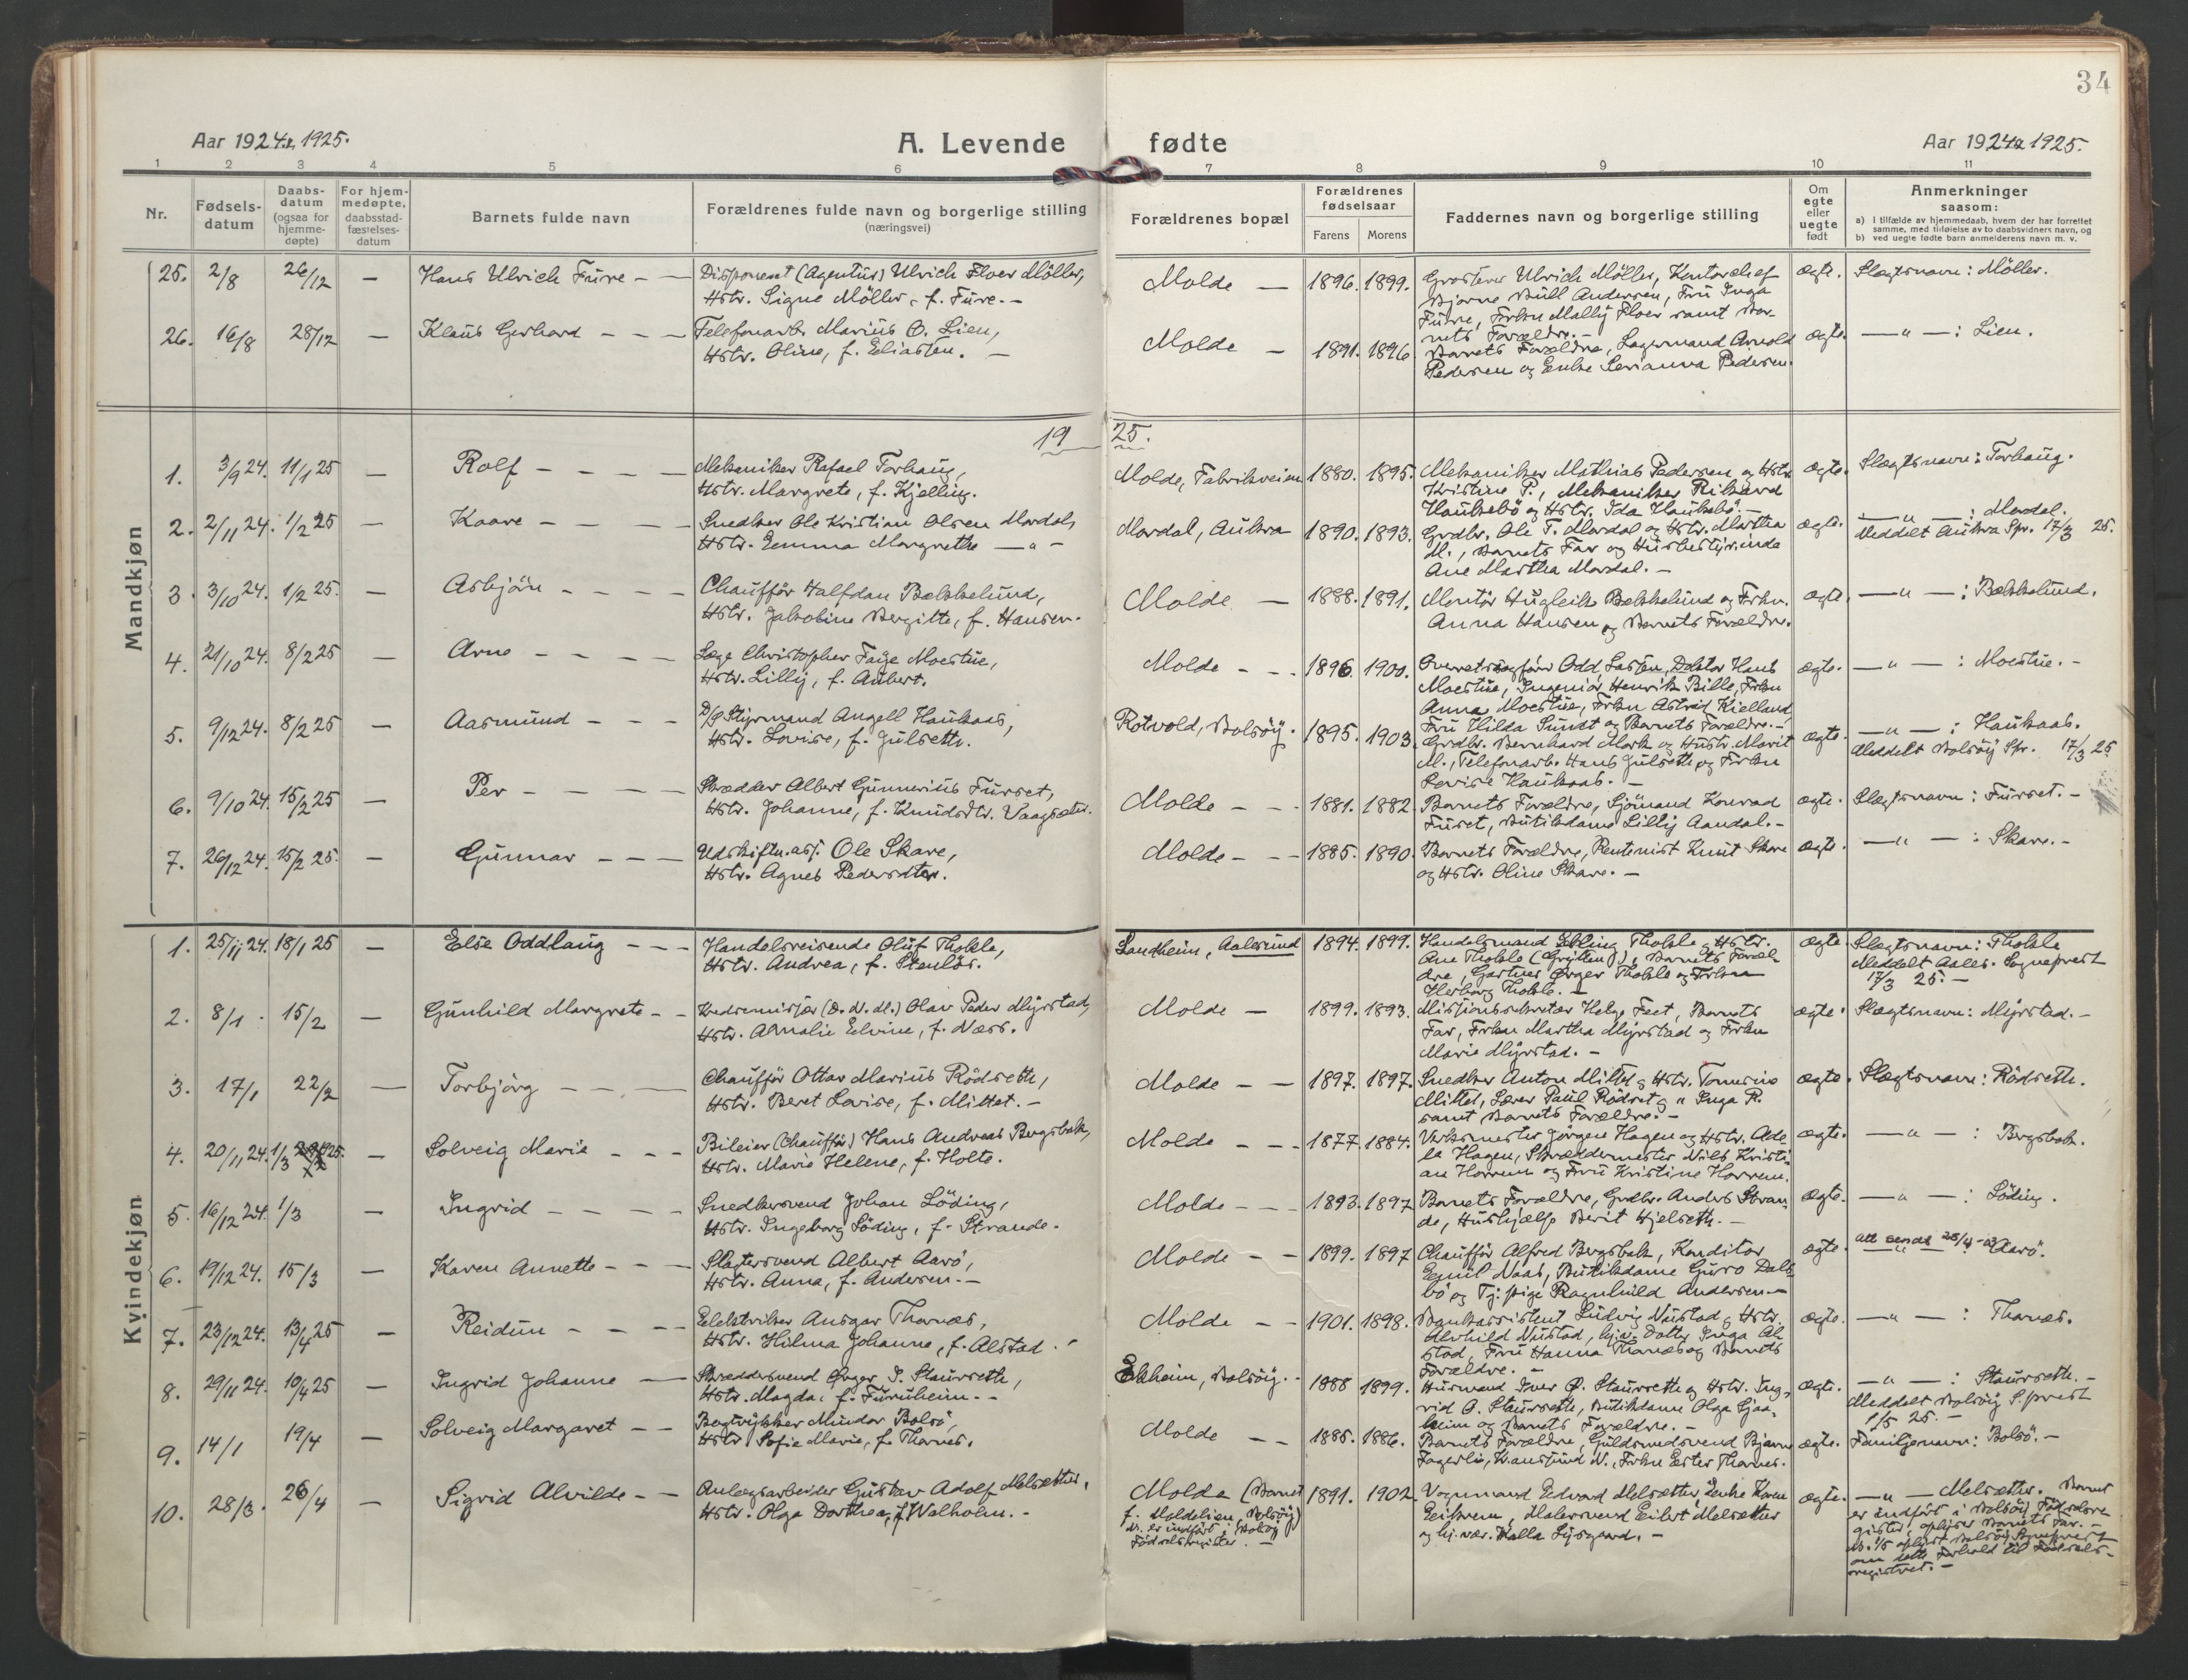 34
Aar 1924 & 1925.
A. Levende fødte
Aar 1924 & 1925.
1 2 3 4 5 6 7 8 9 10 11
Nr.
Fødsels-
datum
Daabs-
datum
(ogsaa for
hjemme-
døpte)
For hjem-
medøpte,
daabsstad-
fæstelses-
datum
Barnets fulde navn
Forældrenes fulde navn og borgerlige stilling
(næringsvei)
Forældrenes bopæl
Forældrenes
fødselsaar
Farens Morens
Faddernes navn og borgerlige stilling
Om
egte
eller
uegte
født
Anmerkninger
saasom:
a) i tilfælde av hjemmedaab, hvem der har forrettet
samme, med tilføielse av to daabsvidners navn, og
b) ved uegte fødte barn anmelderens navn m. v.
25. 2/8 26/12 — Hans Ulrich Furre — —
Disponent (Agentur) Ulrich Floer Møller,
Hstr. Signe Möller, f. Furre. —
Molde — 1896. 1899.
Ulrich Möller, Kontorchef
Bjarne Bull Andersen, Fru Inga
Furre, Frkn Mally Floer samt Bar-
nets Forældre. —
ægte. Slægtsnavn: Möller.
26. 16/8 28/12 — Klaus Gerhard — — —
Telefonarb. Marius O. Lien,
Hstr. Oline, f. Eliassen. —
Molde — 1891. 1896
Barnets Forældre, Lagermand Arnold
Pedersen og Enke Serianna Pedersen.
ægte. — " — : Lien.
1925.
Mandkjøn
1. 3/9 24. 11/1 25 — Rolf — — — —
Mekaniker Rafael Torhaug,
Hstr. Margrete, f. Kjelling.
Molde, Fabrikveien 1880. 1895.
Mekaniker Mathias Pedersen og Hstr.
Kristine P., Mekaniker Rikard
Haukebö og Hstr. Ida Haukebö. —
ægte. Slægtsnavn: Torhaug.
2. 2/11 24. 1/2 25 — Kaare — — — —
Snedker Ole Kristian Olsen Mordal,
Hstr. Emma Margrethe — " —
Mordal, Aukra 1890. 1893.
Grdbr. Ole T. Mordal og Hstr. Martha
M., Barnets Far og Husbestyrinde
Ane Martha Mordal. —
ægte. — " — : Mordal.
Meddelt Aukra Spr. 17/3 25.
3. 3/10 24. 1/2 25. — Asbjörn — — — —
Chaufför Halfdan Bækkelund,
Hstr. Jakobine Bergitte, f. Hansen.
Molde — 1888. 1891.
Montör Hugleik Bækkelund og Frkn.
Anna Hansen og Barnets Forældre.
ægte. — " — : Bækkelund.
4. 21/10 24. 8/2 25 — Arne — — — —
Læge Christopher Faye Moestue,
Hstr. Lilly, f. Aubert.
Molde — — 1896. 1900.
Overretssagförer Odd Lassen, Doktor Hans
Moestue, Ingeniör Henrik Bille, Frkn
Anna Moestue, Frkn Astrid Kielland,
Fru Hilda Sundt og Barnets Forældre. —
ægte. — " — : Moestue. —
5. 9/12 24. 8/2 25 — Aasmund — — —
D/S Styrmand Angell Haukaas,
Hstr. Lovise, f. Julseth.
Rotvold, Bolsöy. 1895. 1903.
Grdbr. Bernhard Mork og Hustr. Marit
M., Telefonarb. Hans Julseth og Frkn
Lovise Haukaas. —
ægte. — " — : Haukaas.
Meddelt Bolsöy Spr. 17/3 25
6. 9/10 24. 15/2 25 — Per — — — —
Skrædder Albert Gunnerius Furset,
Hstr. Johanne, f. Knudsdtr. Vaagsæter.
Molde — — 1881. 1882
Barnets Forældre, Sjömand Konrad
Furset, Butikdame Lilly Aandal. —
ægte. Slægtsnavn: Furset. —
7. 26/12 24. 15/2 25. — Gunnar — — —
Udskiftn.ass. Ole Skare,
Hstr. Agnes Pedersdter.
Molde — — 1885. 1890.
Barnets Forældre, Rentenist Knut Skare
og Hstr. Oline Skare. —
ægte. — " — : Skare. —
Kvindekjøn
1. 25/11 24. 18/1 25 — Else Oddlaug — — —
Handelsreisende Oluf Thokle,
Hstr. Andrea, f. Stenlös.
Sandheim, Aalesund 1894. 1899.
Handelsmand Thokle, Hstr.
Ane Thokle, Barnets Foræl-
dre, Gartner Ørger Thokle og Frkn
Herborg Thokle. —
ægte. Slægtsnavn: Thokle
Meddelt Aales. Sogneprest
17/3 25. —
2. 8/1 15/2 — Gunhild Margrete — —
Kredsemissjær Olav Peder Myrstad,
Hstr. Amalie Elvine, f. Næss.
Molde — 1899. 1893.
Missionssekretær Helge Feet, Barnets
Far, Frkn Martha Myrstad og Frkn
Marie Myrstad. —
ægte. Slægtsnavn: Myrstad. —
3. 17/1 22/2 — Torbjörg — — —
Chaufför Ottar Marius Rödseth,
Hstr. Beret Lovise, f. Mittet. —
Molde — — 1897. 1897.
Snedker Anton Mittet og Hstr. Tomerine
Mittet, Lærer Paul Rödset og " Inga R.
samt Barnets Forældre. —
ægte. Slægtsnavn: Rödseth.
4. 20/11 24. 1/3 25. — Solveig Marie — — —
Bileier (Chauffør) Hans Andreas Bergsbak,
Hstr. Marie Helene, f. Holte.
Molde — — — 1877. 1884.
Verksmester Jörgen Hagen og Hstr. Ade-
le Hagen, Skræddermester Nils Kristi-
an Horrem og Fru Kristine Horrem.
ægte. — " — : Bergsbak.
5. 16/12 24. 1/3 — Ingrid — — — —
Snedkersvend Johan Löding,
Hstr. Ingeborg Löding, f. Strande.
Molde — — — 1893. 1897
Barnets Forældre, Grdbr. Anders Stran-
de, Hushjælp Berit Hjelseth. —
ægte. — " — : Löding.
6. 19/12 24. 15/3 — Karen Annette — — —
Slagtersvend Albert Aarö,
Hstr. Anna, f. Andersen. —
Molde — — 1899. 1897
Chauffør Alfred Bergsbak, Konditor
Emil Naas, Butikdame Guro Dals-
bö og Tj.pige Ragnhild Andersen. —
ægte. — " — Aarö.
7. 23/12 24. 13/4 25 — Reidun — — —
Elektriker Ansgar Thanæs,
Hstr. Hilma Johanne, f. Alstad.
Molde — — 1901. 1898.
Bankassistent Ludvig Nustad og Hstr.
Alvhild Nustad, hjv. Datter Inga Al-
stad, Fru Hanna Thanæs og Barnets
Forældre. —
ægte. — " — : Thanæs.
8. 29/11 24. 10/4 25 — Ingrid Johanne —
Skræddersvend Ørger I. Staurseth,
Hstr. Magda, f. Furuheim. —
Ekheim, Bolsöy. 1888 1899.
Husmand Iver Ø. Staurseth og Hstr. Ing-
rid O. Staurseth, Butikdame Olga Sjaa-
heim og Barnets Forældre. —
ægte. — " — : Staurseth. —
Meddelt Bolsöy S.prest
1/5 25. —
9. 14/1 19/4 — Solveig Margaret — —
Bogtrykker Mindor Bolsö,
Hstr. Sofie Marie, f. Tharnes.
Molde — — 1885. 1886.
Barnets Forældre, Guldsmedsvend Bjarne
Fagerlie, K.ansund N., Frkn Ester Tharnes.
ægte. Familjenavn: Bolsö. —
10. 28/3. 26/4 — Sigrid Alvilde — —
Anlægsarbeider Gustav Adolf Melsæther,
Hstr. Olga Dorthea, f. Walholm. —
Molde (Barnet
f. Moldelien, Bolsöy)
N. er indført i Bolsöy
Fødselsregister. —
1891. 1902.
Vognmand Edvard Melsæther, Enke Karen
Eikrem, Malersvend Eilert Melsæther
og hj.vær. Kalla Lysgaard. —
ægte. — " — Melsæther. Barnet
er indført i Bolsöy Fødselsre-
gister, oplyser Barnets Far. —